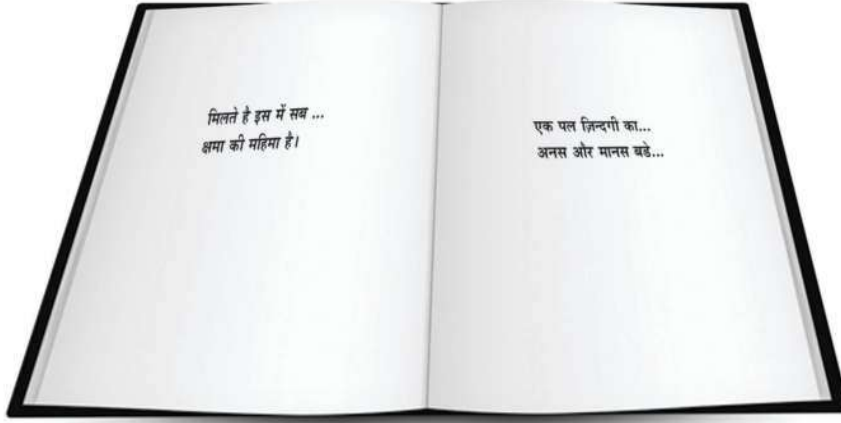 मिलते है इस में सब ...
क्षमा की महिमा है।
एक पल ज़िन्दगी का...
अनस और मानस बडे...